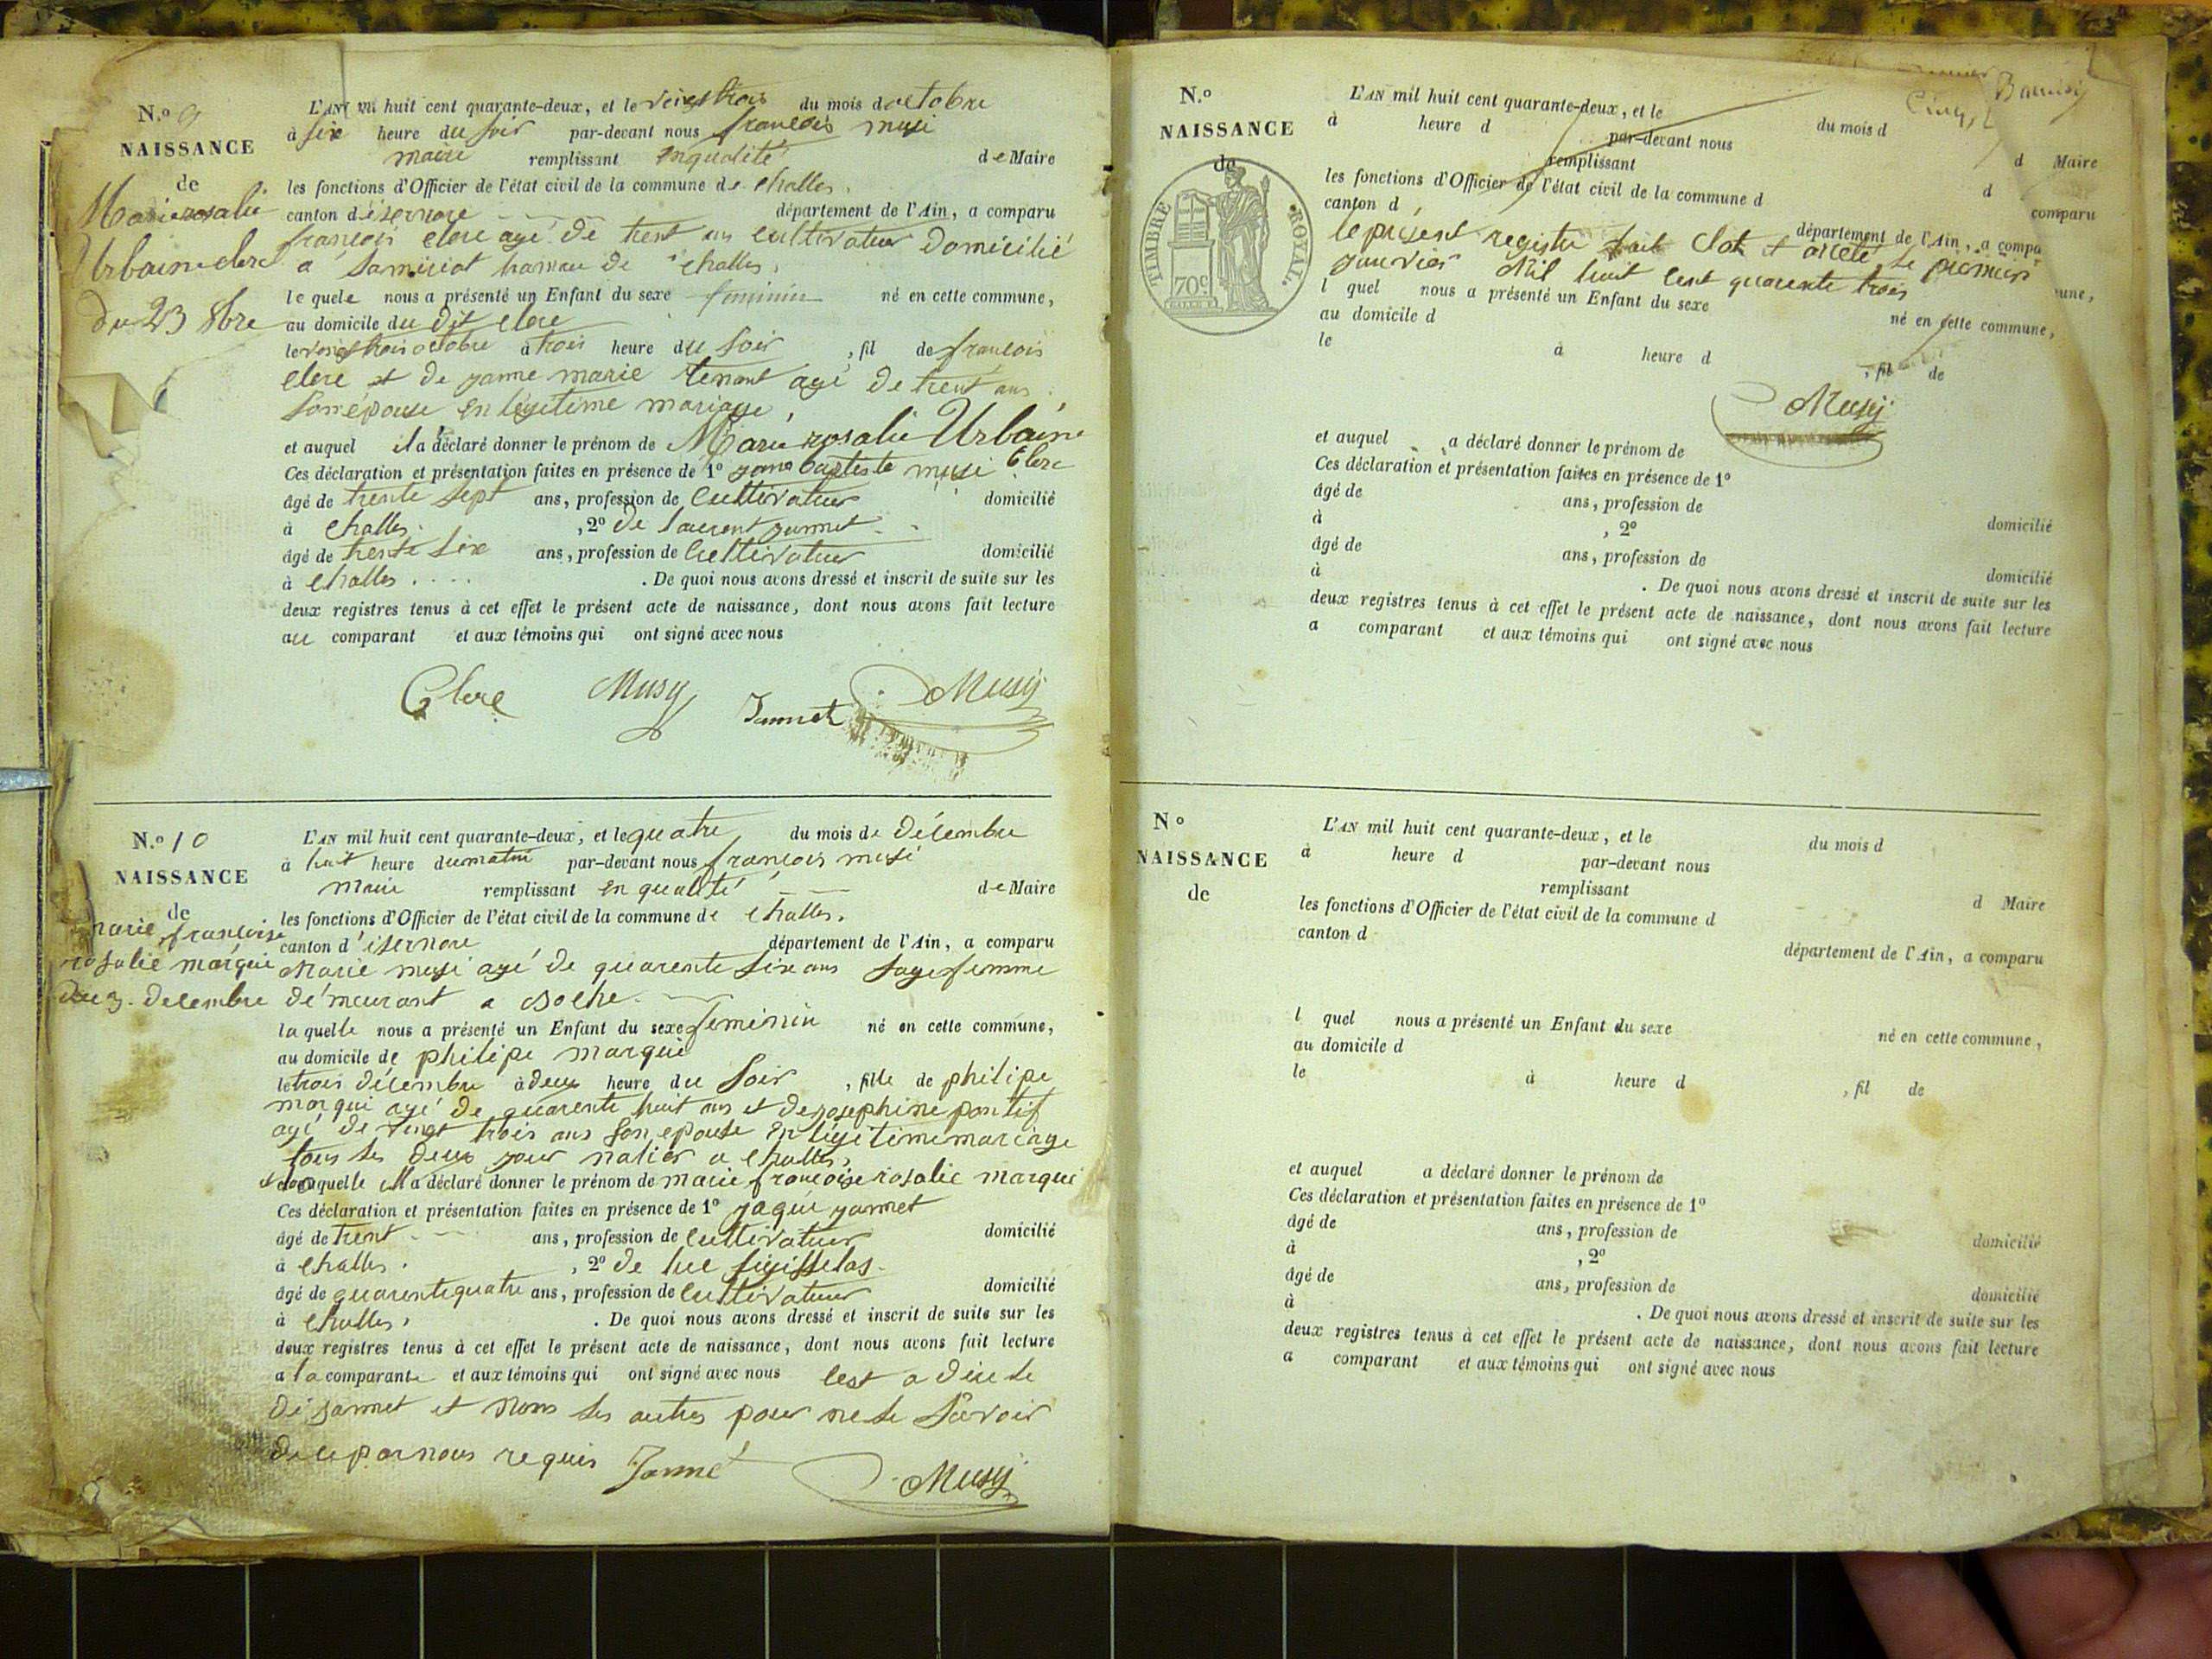 N.º 9
NAISSANCE
de
Marie rosalie
Urbaine clerc
du 23 8bre
L'AN mil huit cent quarante-deux, et le vingt trois du mois d octobre
à six heure du soir par-devant nous françois musi
maire remplissant en qualité de Maire
les fonctions d'Officier de l'état civil de la commune de challes.
canton d isernore département de l'Ain, a comparu
françois clerc agé de trent ans cultivateur domicilié
a samiriat hamau de challes.
le quele nous a présenté un Enfant du sexe feminin né en cette commune,
au domicile du dit clerc
le vingt trois octobre à trois heure du soir , fil de françois
clerc et de janne marie tenant agé de trent ans
son épouse en légitime mariage,
et auquel il a déclaré donner le prénom de Marie rosalie Urbaine
Clerc
Ces déclaration et présentation faites en présence de 1º jane baptiste musi
âgé de trente sept ans, profession de cultivateur domicilié
à challes. , 2º de laurent jannet
âgé de trente six ans, profession de cultivateur domicilié
à challes . . . . . De quoi nous avons dressé et inscrit de suite sur les
deux registres tenus à cet effet le présent acte de naissance, dont nous avons fait lecture
au comparant et aux témoins qui ont signé avec nous
Clerc Musy Jannet Musy
N.º 10
NAISSANCE
de
marie françoise
rosalie marqui
du 3. decembre
L'AN mil huit cent quarante-deux, et le quatre du mois de décembre
à huit heure du matin par-devant nous françois musi
maire remplissant en qualité de Maire
les fonctions d'Officier de l'état civil de la commune de challes.
canton d'isernore département de l'Ain, a comparu
Marie musi agé de quarente six ans sage femme
démeurant a
la quelle nous a présenté un Enfant du sexe feminin né en cette commune,
au domicile de philipe marqui
le trois décembre à deux heure du soir , fille de philipe
marqui agé de quarente huit ans et de josephine pontif
agé de vingt trois ans son epouse en légitime mariage
tous les deux jour nalier a challes,
quelle ill a déclaré donner le prénom de marie françoise rosalie marqui
Ces déclaration et présentation faites en présence de 1º jaque jannet
âgé de trent ans, profession de cultivateur domicilié
à challes. , 2º de luc
âgé de quarente quatre ans, profession de cultivateur domicilié
à challes, . De quoi nous avons dressé et inscrit de suite sur les
deux registres tenus à cet effet le présent acte de naissance, dont nous avons fait lecture
a la comparante et aux témoins qui ont signé avec nous cest a dire le
dé jannet et nons les autres pour ne le savoir
de ce par nous requis Janne Musy
N.º
NAISSANCE
de
TIMBRE ROYAL.
70c
L'AN mil huit cent quarante-deux, et le du mois d
à heure d par-devant nous
remplissant d Maire
les fonctions d'Officier de l'état civil de la commune d d
canton d comparu
département de l'Ain, a compa
le présent registre fait Clot et arreté le premier
janvier Mil huit cent quarente trois
une,
l quel nous a présenté un Enfant du sexe né en cette commune,
au domicile d
le à heure d , fil de
Musy
et auquel a déclaré donner le prénom de
Ces déclaration et présentation faites en présence de 1º
âgé de ans, profession de domicilié
à , 2º
âgé de ans, profession de domicilié
à . De quoi nous avons dressé et inscrit de suite sur les
deux registres tenus à cet effet le présent acte de naissance, dont nous avons fait lecture
a comparant et aux témoins qui ont signé avec nous
Nº
NAISSANCE
de
L'AN mil huit cent quarante-deux, et le du mois d
à heure d par-devant nous
remplissant d Maire
les fonctions d'Officier de l'état civil de la commune d
canton d département de l'Ain, a comparu
l quel nous a présenté un Enfant du sexe né en cette commune,
au domicile d
le à heure d , fil de
et auquel a déclaré donner le prénom de
Ces déclaration et présentation faites en présence de 1º
âgé de ans, profession de domicilié
à , 2º
âgé de ans, profession de domicilié
à . De quoi nous avons dressé et inscrit de suite sur les
deux registres tenus à cet effet le présent acte de naissance, dont nous avons fait lecture
a comparant et aux témoins qui ont signé avec nous